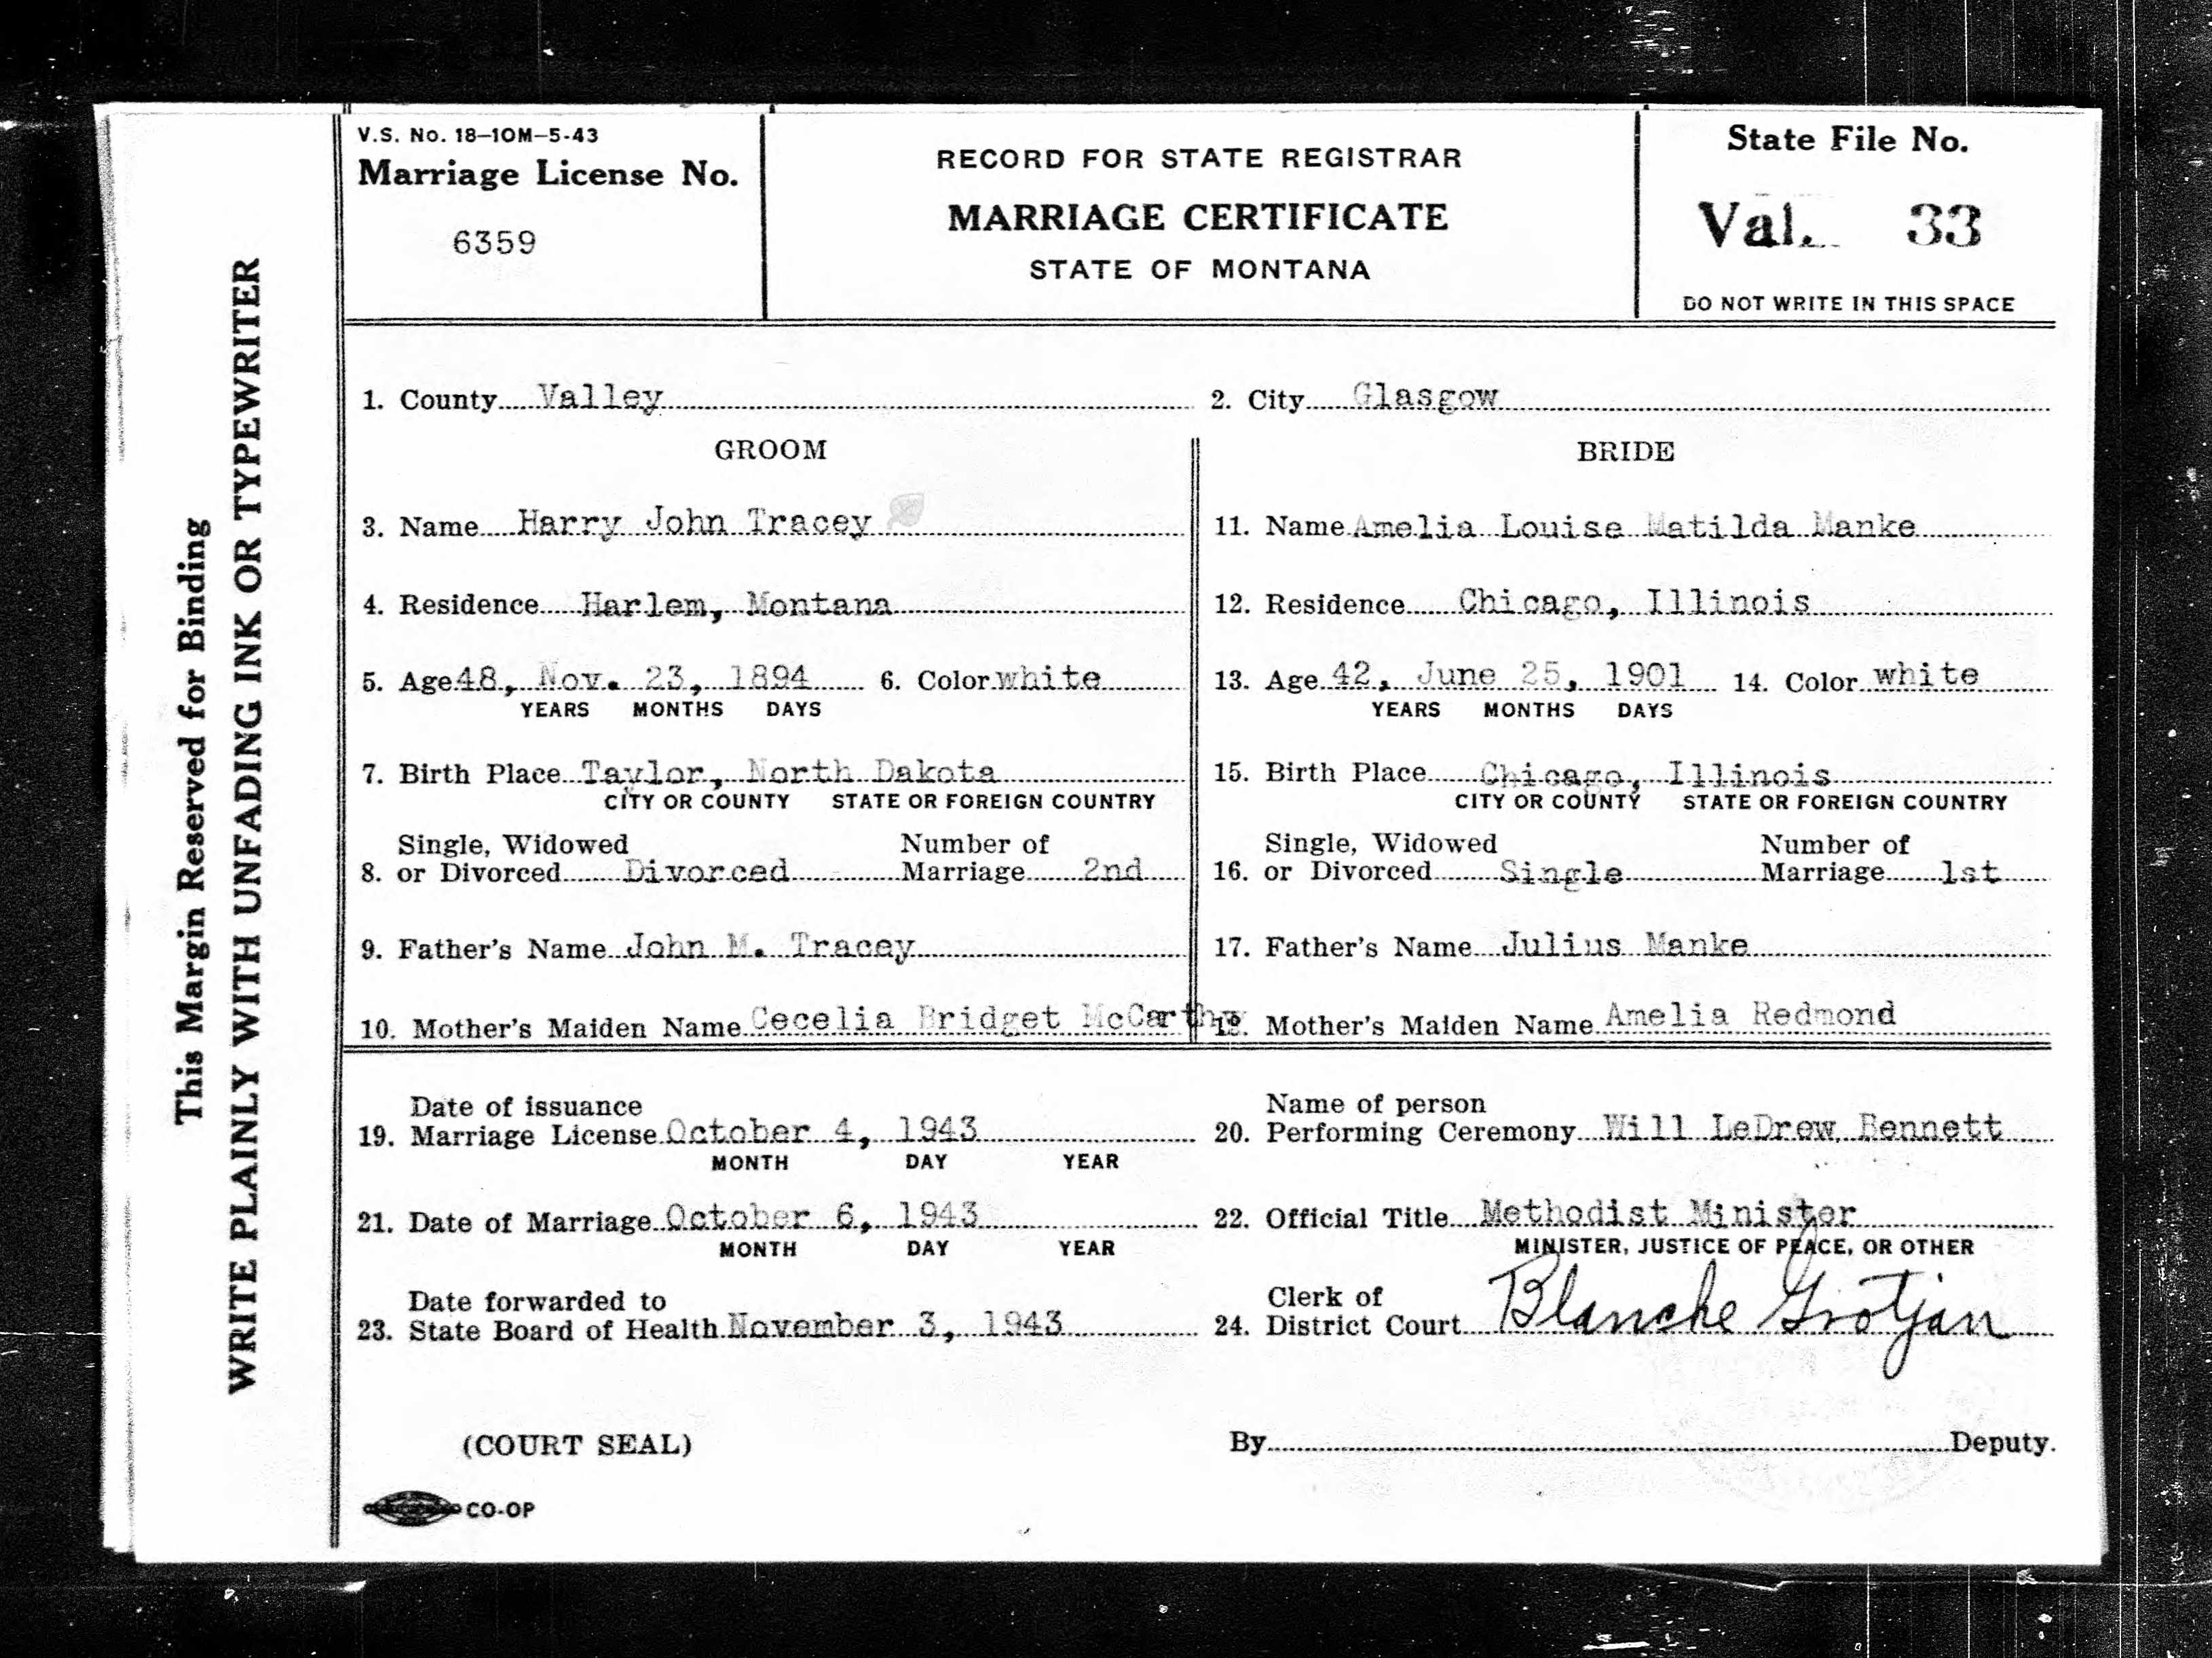 V.S. No. 18–10M–5-43
Marriage License No.
6359
RECORD FOR STATE REGISTRAR
MARRIAGE CERTIFICATE
STATE OF MONTANA
State File No.
Val. 33
DO NOT WRITE IN THIS SPACE
This Margin Reserved for Binding
WRITE PLAINLY WITH UNFADING INK OR TYPEWRITER
1. County Valley
2. City Glasgow
GROOM
3. Name Harry John Tracey
4. Residence Harlem, Montana
5. Age 48, Nov. 23, 1894 6. Color white
YEARS MONTHS DAYS
7. Birth Place Taylor, North Dakota
CITY OR COUNTY STATE OR FOREIGN COUNTRY
Single, Widowed Number of
8. or Divorced Divorced Marriage 2nd
9. Father's Name John M. Tracey
10. Mother's Maiden Name Cecelia Bridget McCarthy
BRIDE
11. Name Amelia Louise Matilda Manke
12. Residence Chicago, Illinois
13. Age 42, June 25, 1901 14. Color white
YEARS MONTHS DAYS
15. Birth Place Chicago, Illinois
CITY OR COUNTY STATE OR FOREIGN COUNTRY
Single, Widowed Number of
16. or Divorced Single Marriage 1st
17. Father's Name Julius Manke
18. Mother's Maiden Name Amelia Redmond
Date of issuance
19. Marriage License October 4, 1943
MONTH DAY YEAR
Name of person
20. Performing Ceremony Will LeDrew Bennett
21. Date of Marriage October 6, 1943
MONTH DAY YEAR
22. Official Title Methodist Minister
MINISTER, JUSTICE OF PEACE, OR OTHER
Date forwarded to
23. State Board of Health November 3, 1943
Clerk of
24. District Court Blanche Grotjan
(COURT SEAL)
By Deputy.
CO-OP